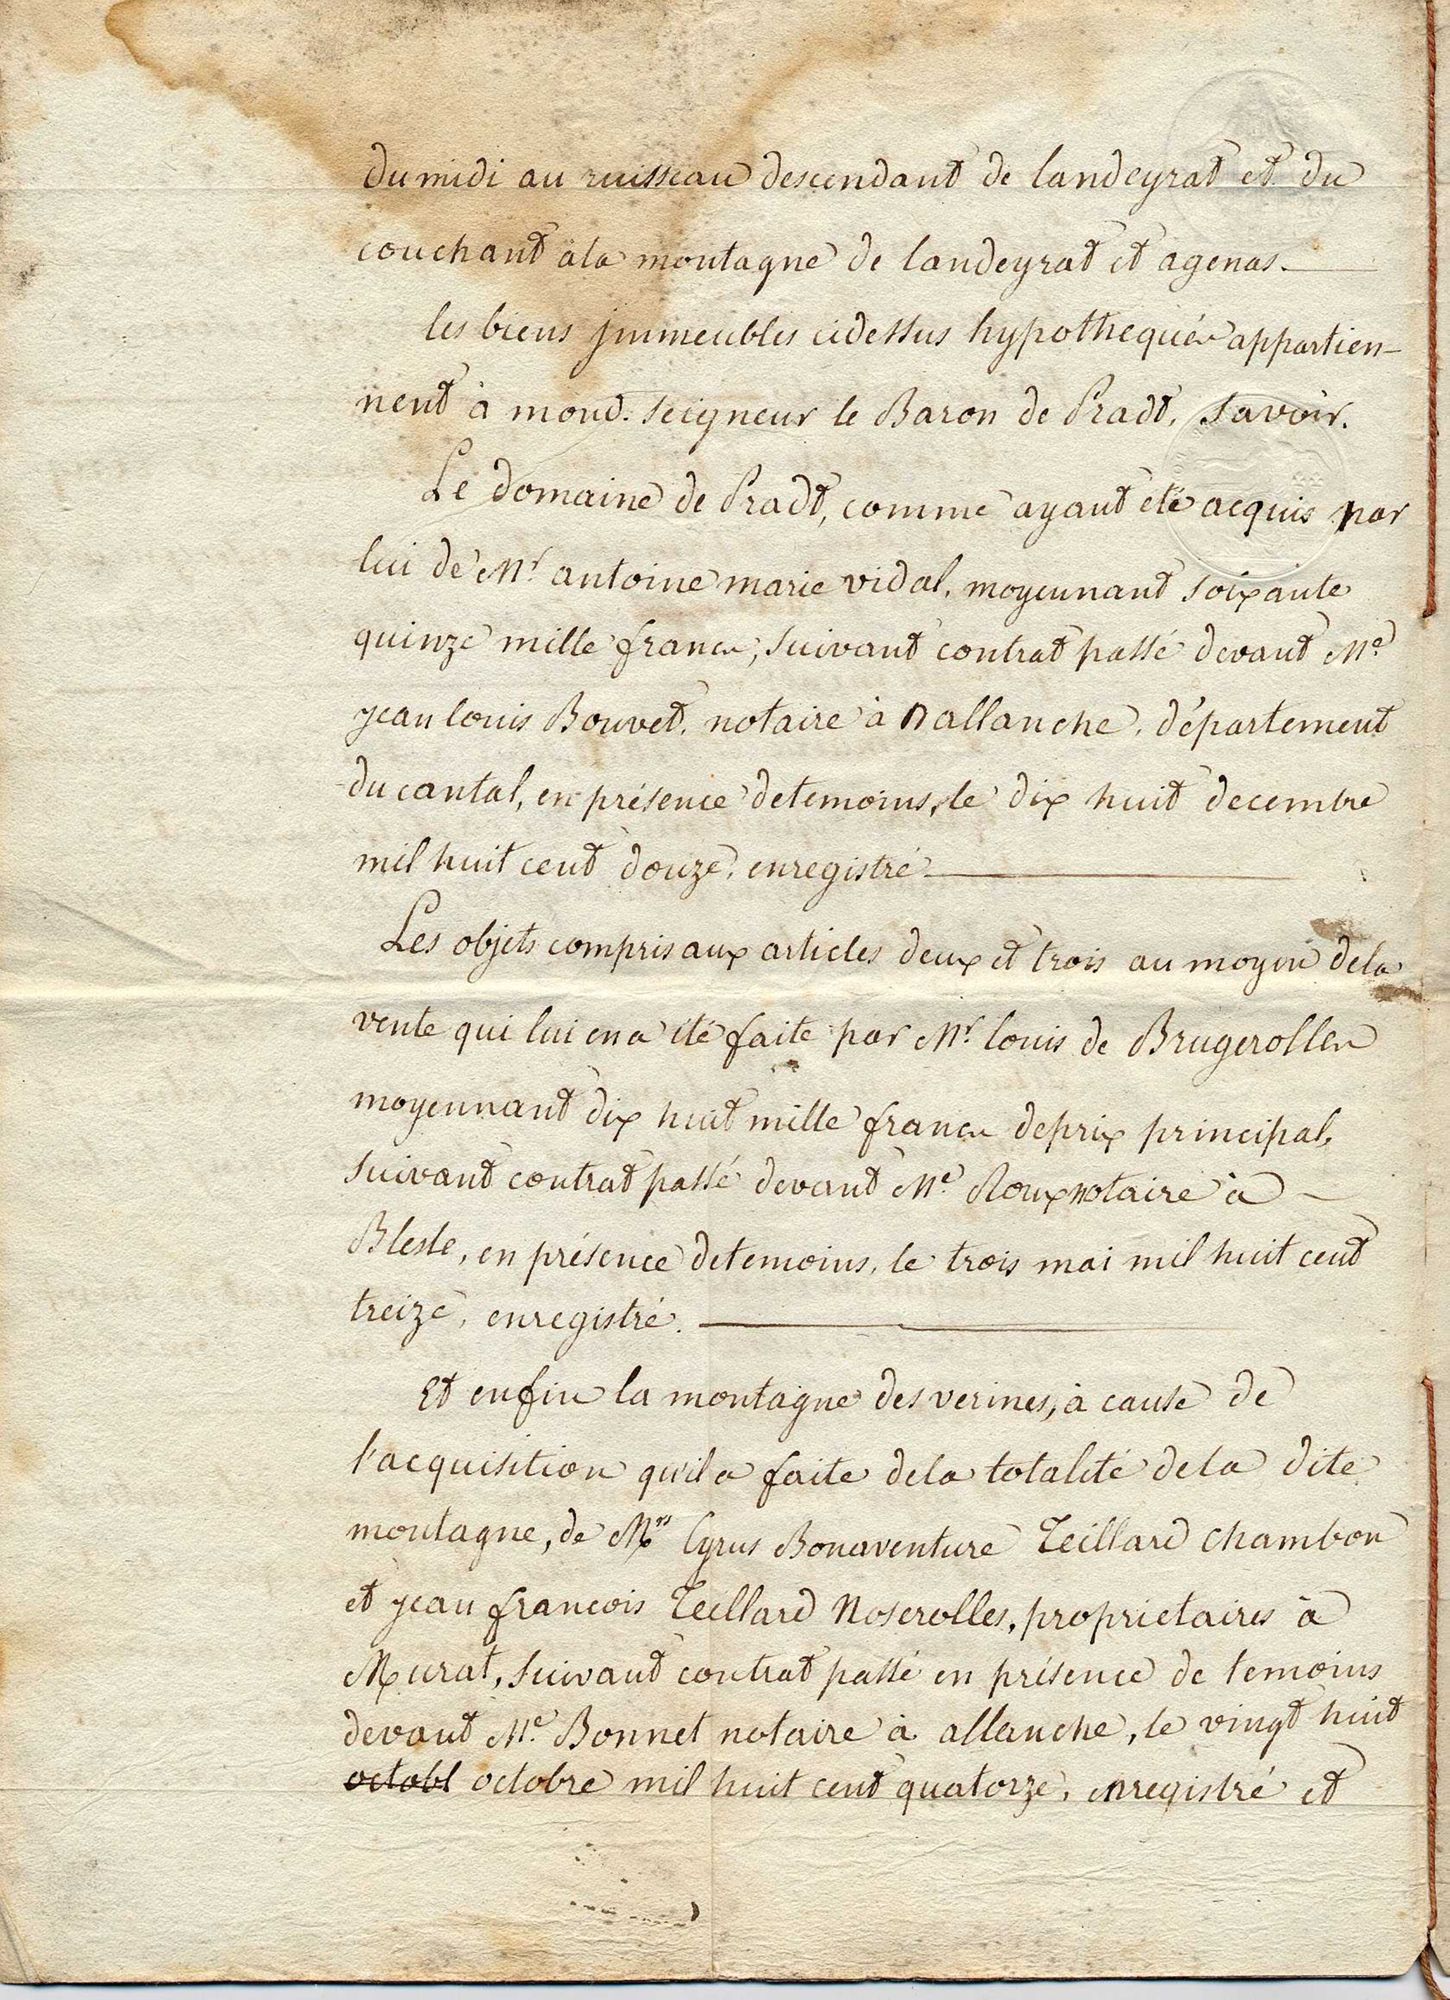 du midi au ruisseau descendant de landeyrat et du
couchant àla montagne de landeyrat et agenas.
les biens jmmeubles cidessus hypothequés appartien-
nent à mond. seigneur le Baron de Pradt, savoir.
Le domaine de Pradt, comme ayant eté acquis par
lui de Mr. antoine marie vidal, moyennant soixante
quinze mille francs, suivant contrat passé devant Me.
jean louis Bouvet, notaire à allanche, département
du cantal, en présence detemoins, le dix huit decembre
mil huit cent douze, enregistré
Les objets compris aux articles deux et trois au moyen dela
vente qui lui en a été faite par Mr. louis de Brugerolles
moyennant dix huit mille francs deprix principal,
suivant contrat passé devant Me. Roux notaire à
Blesle, en présence detemoins, le trois mai mil huit cent
treize, enregistré.
Et enfin la montagne des verines, à cause de
l'acquisition qu'il a faite dela totalité dela dite
montagne, de Mrs Cyrus Bonaventure Teillard Chambon
et jean francois Teillard Noserolles, proprietaires à
Murat, suivant contrat passé en présence de temoins
devant Me. Bonnet notaire à allanche, le vingt huit
octobl octobre mil huit cent quatorze, enregistré et